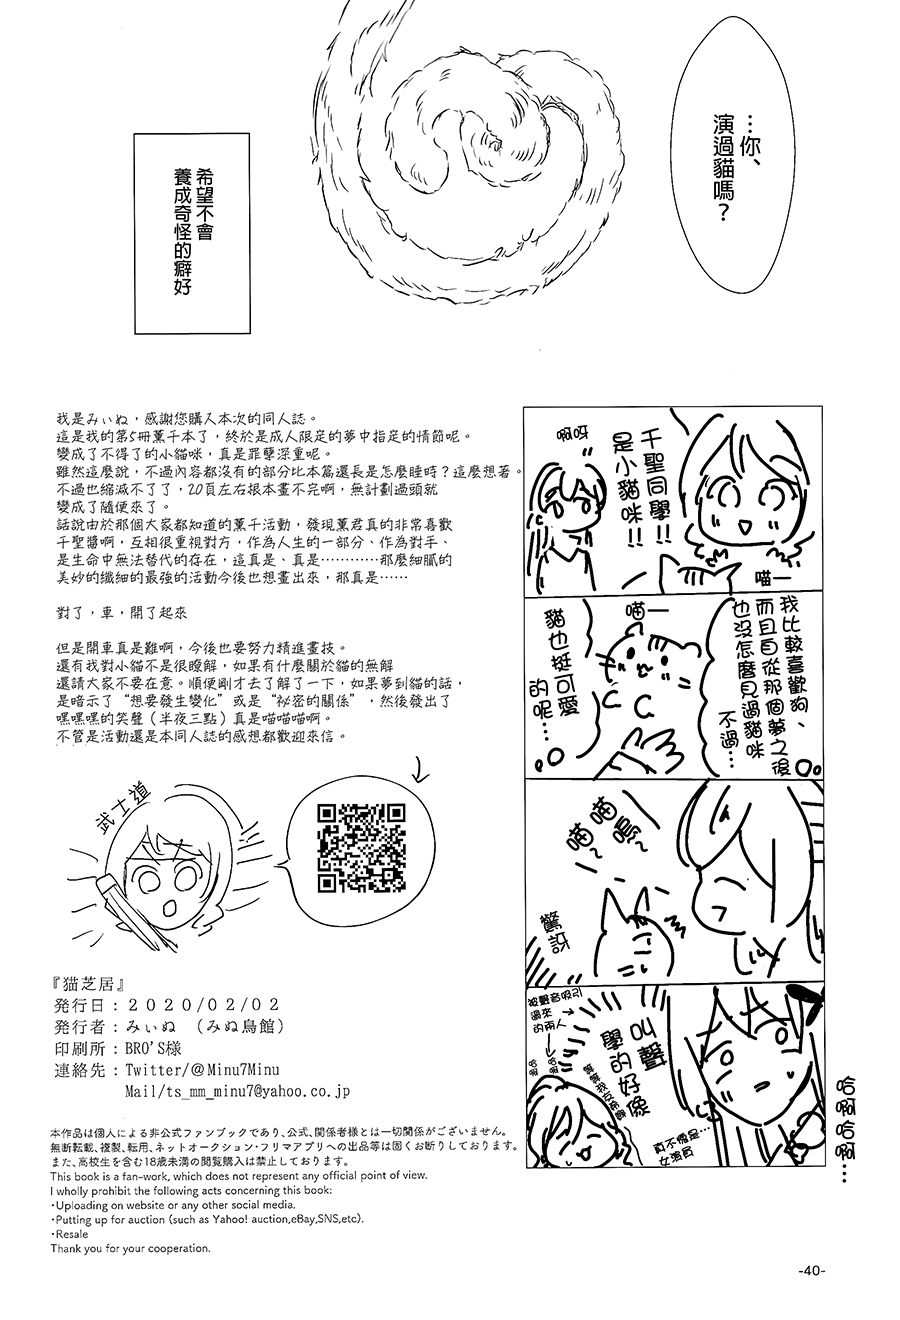 …你、
演過貓嗎？
希望不會
養成奇怪的癖好
我是みぃぬ，感謝您購入本次的同人誌。
這是我的第5冊薫千本了，終於是成人限定的夢中指定的情節呢。
變成了不得了的小貓咪，真是罪孽深重呢。
雖然這麼說，不過內容都沒有的部分比本篇還長是怎麼睡時？這麼想著。
不過也縮減不了了，20頁左右根本畫不完啊，無計劃過頭就
變成了隨便來了。
話說由於那個大家都知道的薫千活動，發現薫君真的非常喜歡
千聖醬啊，互相很重視對方，作為人生的一部分、作為對手、
是生命中無法替代的存在，這真是、真是…………那麼細膩的
美妙的纖細的最強的活動今後也想畫出來，那真是……
對了，車，開了起來
但是開車真是難啊，今後也要努力精進畫技。
還有我對小貓不是很瞭解，如果有什麼關於貓的無解
還請大家不要在意。順便剛才去了解了一下，如果夢到貓的話，
是暗示了“想要發生變化”或是“祕密的關係”，然後發出了
嘿嘿嘿的笑聲（半夜三點）真是喵喵喵啊。
不管是活動還是本同人誌的感想都歡迎來信。
武士道
『猫芝居』
発行日：２０２０/０２/０２
発行者：みぃぬ　（みぬ鳥館）
印刷所：BRO'S様
連絡先：Twitter/@Minu7Minu
Mail/ts_mm_minu7@yahoo.co.jp
本作品は個人による非公式ファンブックであり、公式、関係者様とは一切関係がございません。
無断転載、複製、転用、ネットオークション・フリマアプリへの出品等は固くお断りしております。
また、高校生を含む18歳未満の閲覧購入は禁止しております。
This book is a fan-work, which does not represent any official point of view.
I wholly prohibit the following acts concerning this book:
・Uploading on website or any other social media.
・Putting up for auction (such as Yahoo! auction,eBay,SNS,etc).
・Resale
Thank you for your cooperation.
千聖同學
是小貓咪!!
啊呀
喵—
我比較喜歡狗、
而且自從那個夢之後
也沒怎麼見過貓咪
不過…
喵—
貓也挺可愛
的呢…
喵喵嗚~
喵~
驚訝
叫聲
學的好像
被聲音吸引
過來
的兩人
哈啊
哈啊
真不愧是…
女演員
哈啊哈啊…
-40-